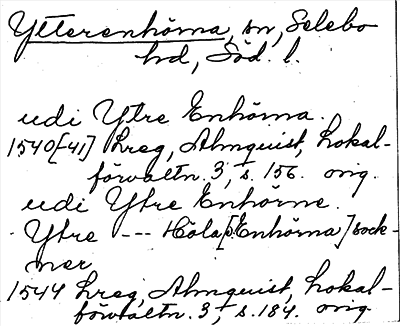 Ytterenhörna, sn, Selebo
hd, Söd. l.
udi Ytre Enhörna.
1540[-41] Lreg, Almquist, Lokal-
förvaltn. 3, s. 156. orig.
udi Ytre Enhörne.
Ytre --- Höla[Enhörna] sock-
ner
1544 Lreg, Almquist, Lokal-
förvaltn. 3, s. 184. orig